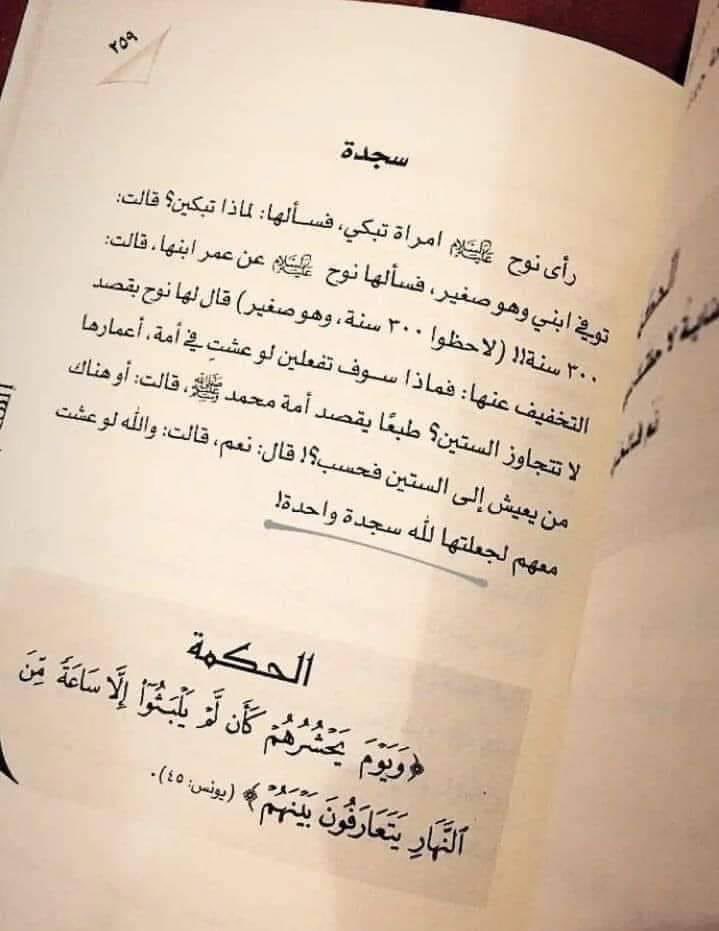 ٣٥٩
سجدة
رأى نوح عليه السلام امرأة تبكي، فسألها: لماذا تبكين؟ قالت:
توفي ابني وهو صغير، فسألها نوح عليه السلام عن عمر ابنها، قالت:
٣٠٠ سنة!! (لاحظوا ٣٠٠ سنة، وهو صغير) قال لها نوح بقصد
التخفيف عنها: فماذا سوف تفعلين لو عشتِ في أمة، أعمارها
لا تتجاوز الستين؟ طبعًا يقصد أمة محمد ﷺ، قالت: أو هناك
من يعيش إلى الستين فحسب؟! قال: نعم، قالت: والله لو عشت
معهم لجعلتها لله سجدة واحدة!
الحكمة
﴿وَيَوْمَ يَحْشُرُهُمْ كَأَن لَّمْ يَلْبَثُوٓا۟ إِلَّا سَاعَةً مِّنَ
ٱلنَّهَارِ يَتَعَارَفُونَ بَيْنَهُمْ﴾ (يونس: ٤٥).